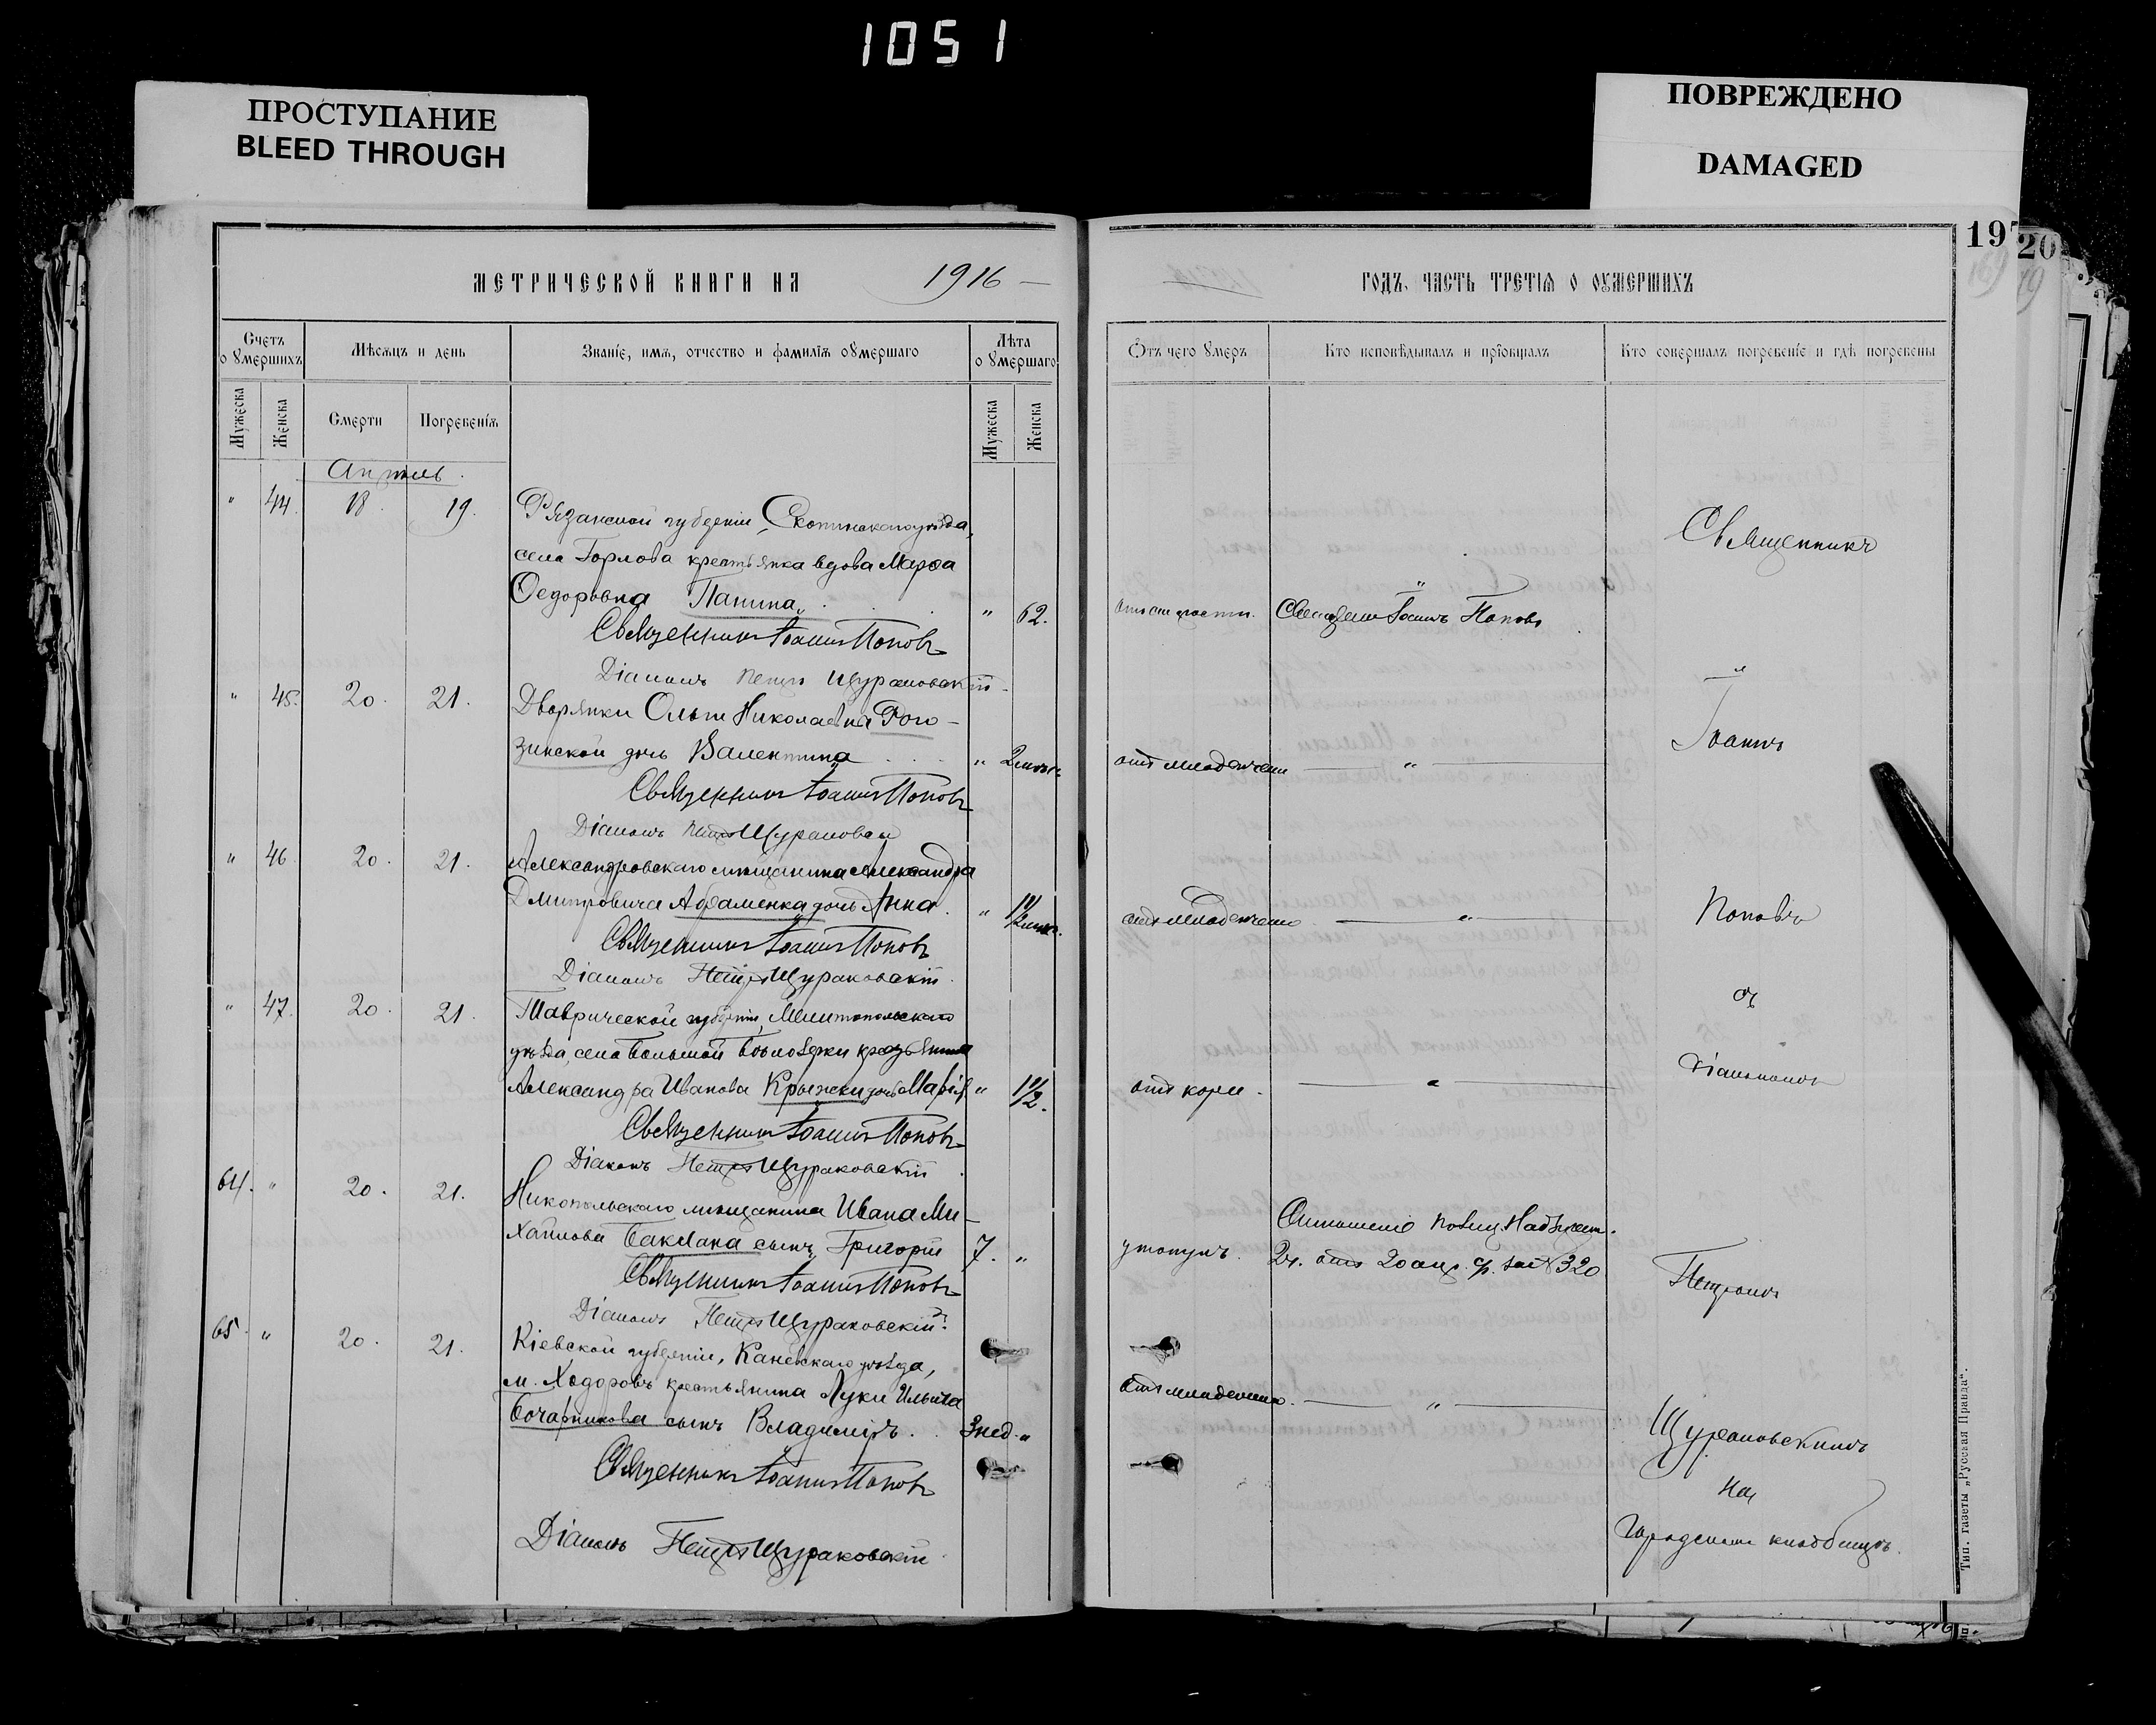 1051
ПРОСТУПАНИЕ
BLEED THROUGH
ПОВРЕЖДЕНО
DAMAGED
МЕТРИЧЕСКОЙ КНИГИ НА 1916
ГОДЪ, ЧАСТЬ ТРЕТІЯ О ОУМЕРШИХЪ
19
20
Счетъ о умершихъ
Мѣсяцъ и день
Званіе, имя, отчество и фамилія оумершаго
Лѣта о умершаго
Отъ чего умеръ
Кто исповѣдывалъ и пріобщалъ
Кто совершалъ погребеніе и гдѣ погребены
Мужеска
Женска
Смерти
Погребенія
Мужеска
Женска
Апрѣль.
" 44. 18. 19.
Рязанской губерніи, Скопинскаго уѣзда,
села Горлова крестьянка вдова Марѳа
Ѳедоровна Панина " 62. отъ старости. Священ. Іоаннъ Поповъ
Священникъ Іоаннъ Поповъ
Діаконъ Петръ Щураковскій.
" 45. 20. 21.
Дворянки Ольги Николаевна Рого-
зинской дочь Валентина " 2 мѣс. отъ младенчес. "
Священникъ Іоаннъ Поповъ
Діаконъ Петръ Щураковскій
" 46. 20. 21.
Александровскаго мѣщанина Александра
Дмитровича Абраменка дочь Анна. " 1 1/2 мѣс. отъ младенчес. "
Священникъ Іоаннъ Поповъ
Діаконъ Петръ Щураковскій.
" 47. 20. 21.
Таврической губерніи, Мелитопольскаго
уѣзда, села Большой Бѣлозерки крестьянина
Александра Иванова Крыжски дочь Марія " 1 1/2. отъ кори. "
Священникъ Іоаннъ Поповъ
Діаконъ Петръ Щураковскій.
64. " 20. 21.
Никопольскаго мѣщанина Ивана Ми-
хайлова Баклана сынъ Григорій 7. " утонулъ.
Отношеніе
2 ч. отъ 20 апр. с. г. за № 320
Священникъ Іоаннъ Поповъ
Діаконъ Петръ Щураковскій.
65. " 20. 21.
Кіевской губерніи, Каневскаго уѣзда,
м. Ходоровъ крестьянина Луки Ильича
Бочарникова сынъ Владиміръ. 3 нед. " отъ младенчес. "
Священникъ Іоаннъ Поповъ
Діаконъ Петръ Щураковскій
Священникъ
Іоаннъ
Поповъ
съ
Діакономъ
Петромъ
Щураковскимъ
на
Городскомъ кладбищѣ.
Тип. газеты „Русская Правда“.